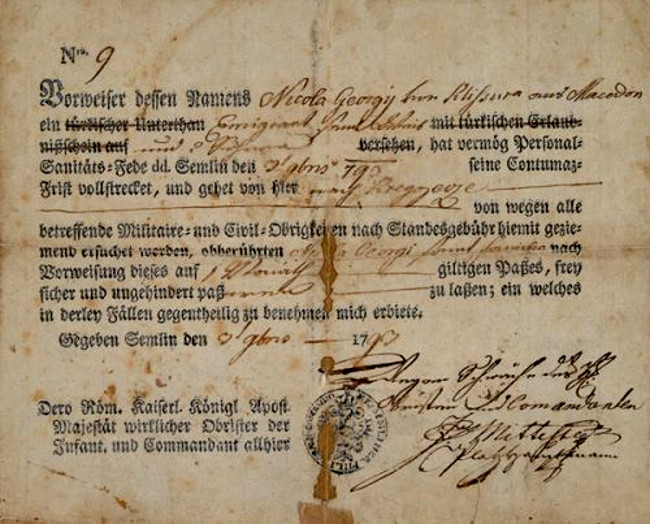 Nro. 9
Vorweiser dessen Namens Nicola Georgij von Klissura aus Macedon
ein türkischer Unterthan Emigrant sammt mit türkischen Erlaub-
nißschein auf und 2 versehen, hat vermög Personal-
Sanitäts-Fede dd. Semlin den 3t 9bris 793 seine Contumaz-
Frist vollstrecket, und gehet von hier nach
von wegen alle
betreffende Militaire- und Civil-Obrigkeiten nach Standesgebühr hiemit gezie-
mend ersuchet werden, obberührten Nicola Georgi sammt nach
Vorweisung dieses auf 1 giltigen Paßes, frey
sicher und ungehindert paß zu laßen; ein welches
in derley Fällen gegentheilig zu benehmen mich erbiete.
Gegeben Semlin den 3t 9bris 1793
Wegen Schwäche des H
Obristen Comandanten
Mittesser
Platzhauptmann
Dero Röm. Kaiserl. Königl. Apost.
Majestät wirklicher Obrister der
Infant. und Commandant allhier